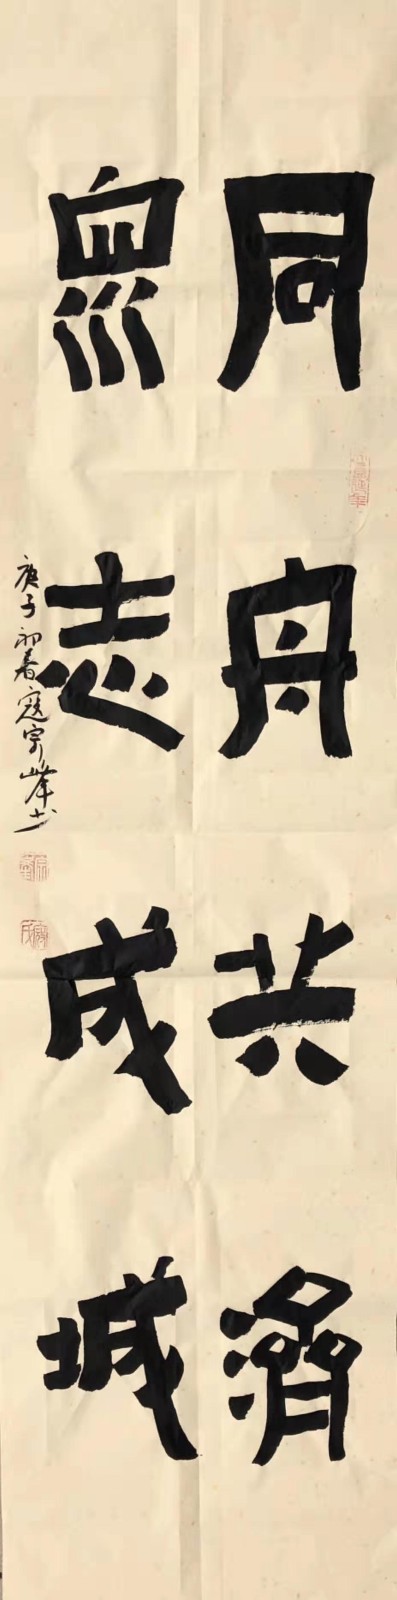 同舟共濟
眾志成城
庚子初春寇宗峰书